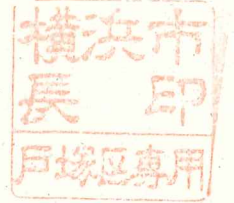 横浜市
長印
戸塚区専用